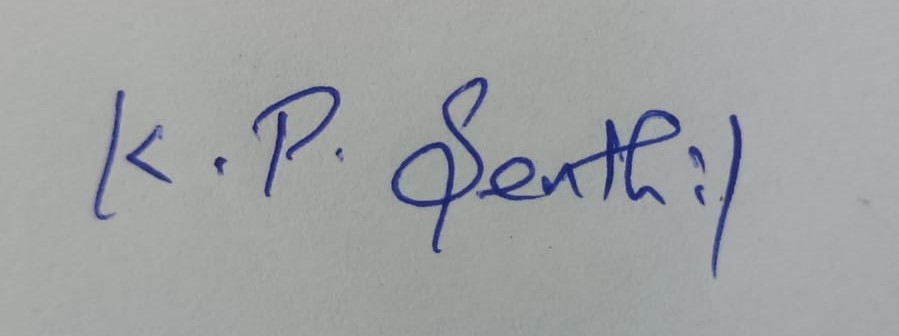 K. P. Senthil